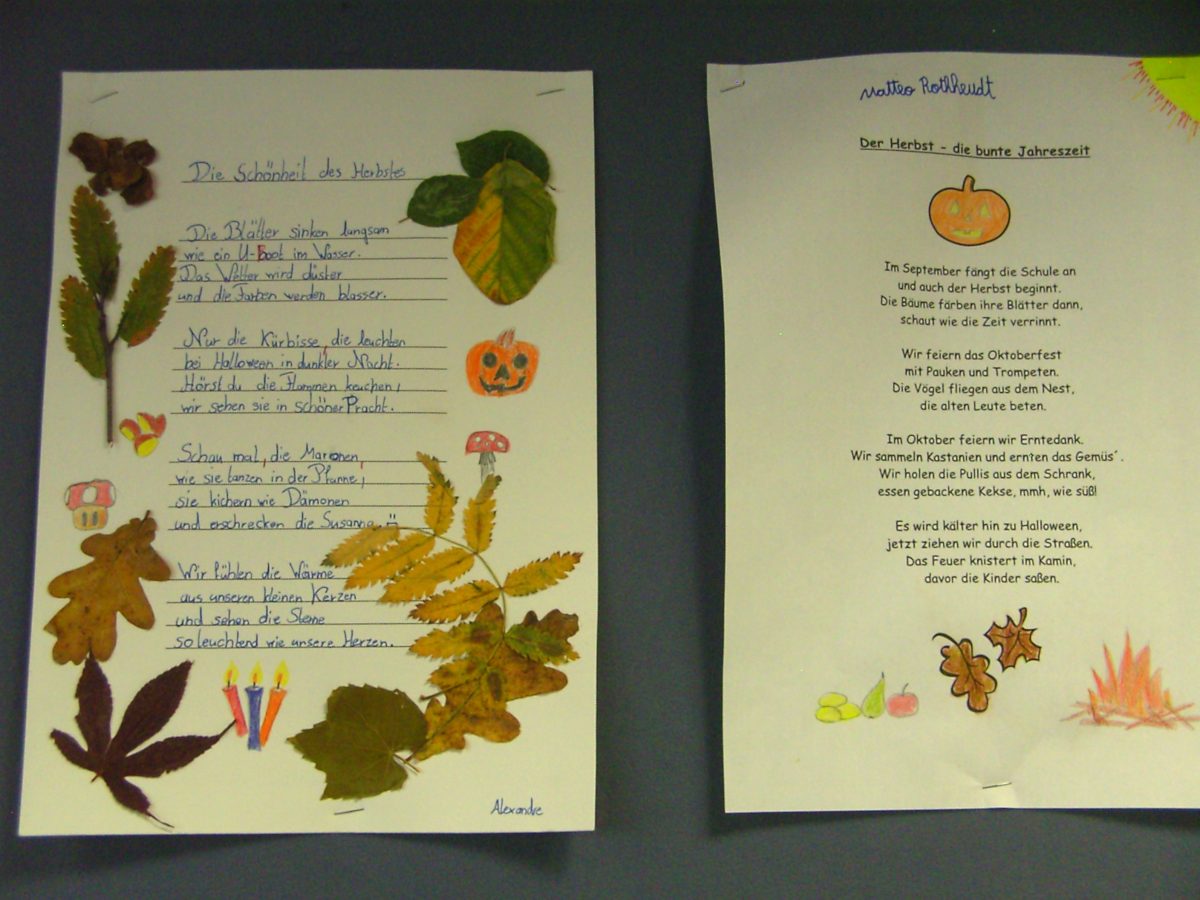 Die Schönheit des Herbstes
Die Blätter sinken langsam
wie ein U-Boot im Wasser.
Das Wetter wird düster
und die Farben werden blasser.
Nur die Kürbisse, die leuchten
bei Halloween in dunkler Nacht.
Hörst du die Flammen keuchen,
wir sehen sie in schöner Pracht.
Schau mal, die Maronen,
wie sie tanzen in der Pfanne,
sie kichern wie Dämonen
und erschrecken die Susanne.
Wir fühlen die Wärme
aus unseren kleinen Kerzen
und sehen die Sterne
so leuchtend wie unsere Herzen.
Alexandre
Matteo Rothheudt
Der Herbst - die bunte Jahreszeit
Im September fängt die Schule an
und auch der Herbst beginnt.
Die Bäume färben ihre Blätter dann,
schaut wie die Zeit verrinnt.
Wir feiern das Oktoberfest
mit Pauken und Trompeten.
Die Vögel fliegen aus dem Nest,
die alten Leute beten.
Im Oktober feiern wir Erntedank.
Wir sammeln Kastanien und ernten das Gemüs´.
Wir holen die Pullis aus dem Schrank,
essen gebackene Kekse, mmh, wie süß!
Es wird kälter hin zu Halloween,
jetzt ziehen wir durch die Straßen.
Das Feuer knistert im Kamin,
davor die Kinder saßen.